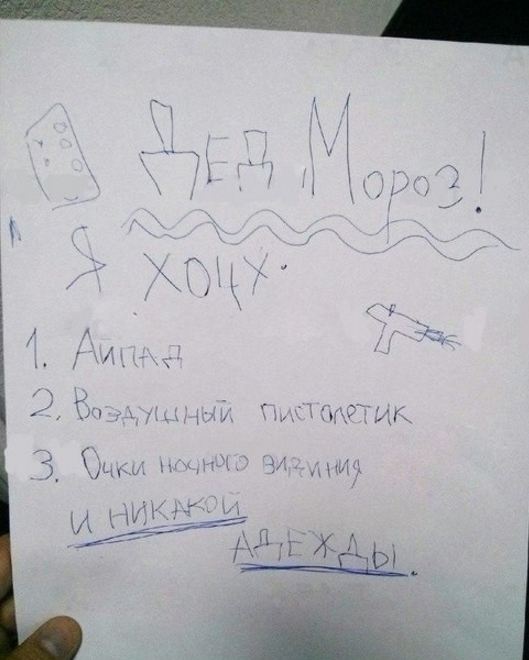 Дед Мороз!
Я хоцу.
1. Айпад
2. Воздушный пистолетик
3. Очки ночного видиния
и никакой
адежды.